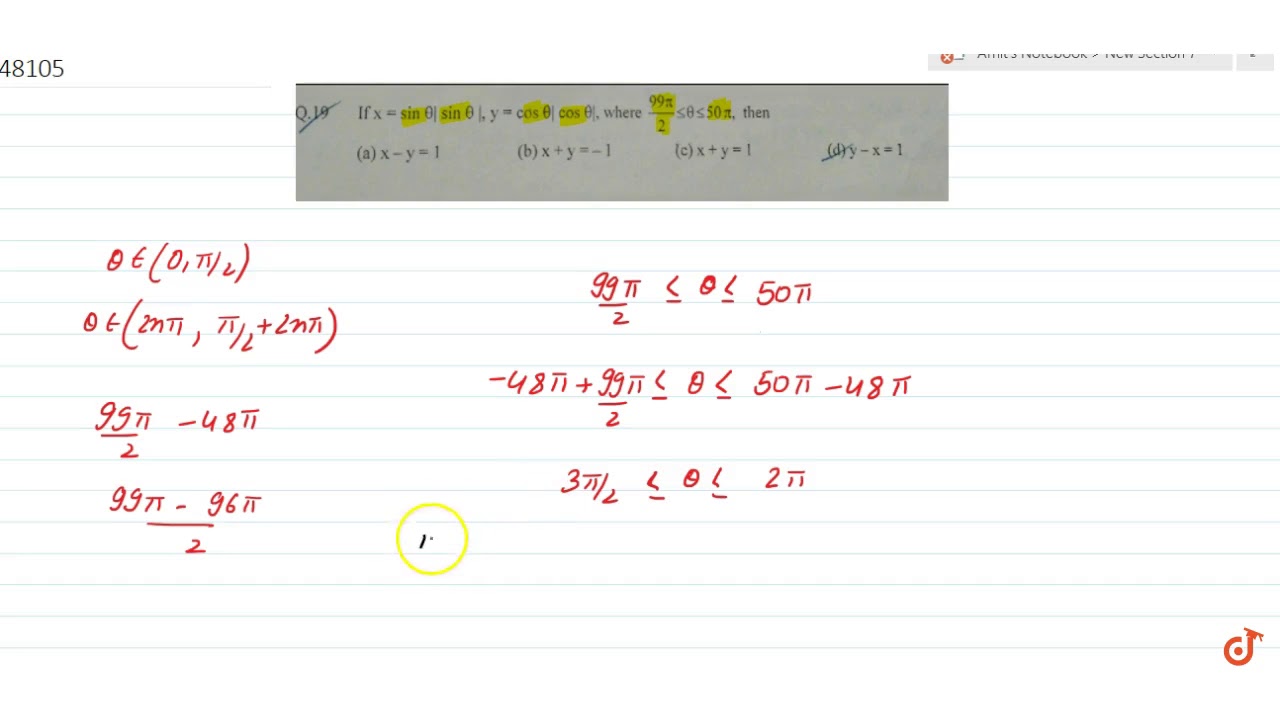 48105
Amit's Notebook > New Section 7
Q.19 If x = sin θ| sin θ |, y = cos θ| cos θ|, where 99π/2 ≤ θ ≤ 50π, then
(a) x – y = 1 (b) x + y = – 1 (c) x + y = 1 (d) y – x = 1
θ ∈ (0, π/2)
θ ∈ (2nπ, π/2 + 2nπ)
99π/2 - 48π
99π - 96π / 2
99π/2 ≤ θ ≤ 50π
-48π + 99π/2 ≤ θ ≤ 50π - 48π
3π/2 ≤ θ ≤ 2π